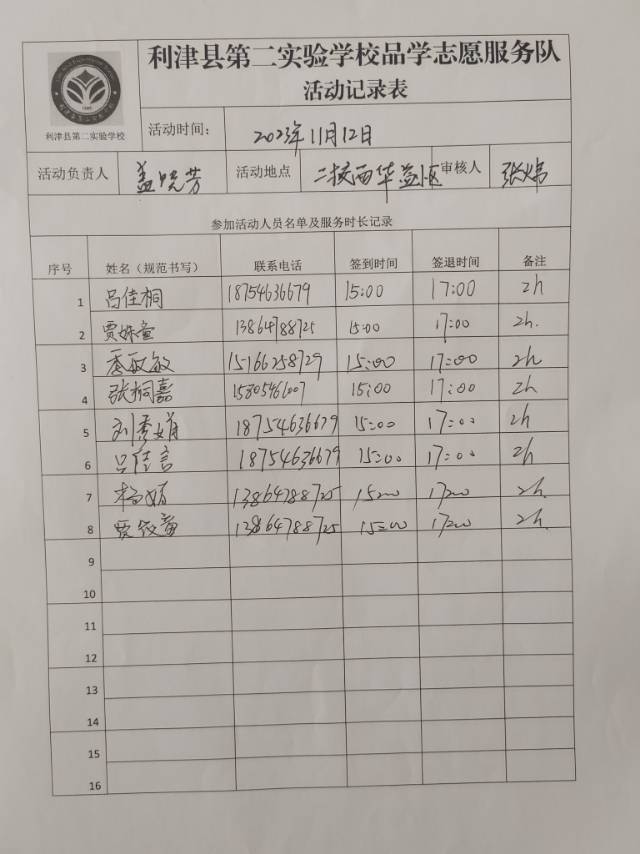 利津县第二实验学校品学志愿服务队
活动记录表
利津县第二实验学校
活动时间： 2023年11月12日
活动负责人 盖晓芳 活动地点 二校西华益小区 审核人 张炜
参加活动人员名单及服务时长记录
序号 姓名（规范书写） 联系电话 签到时间 签退时间 备注
1 吕佳桐 18754636679 15:00 17:00 2h
2 贾姝童 13864788725 15:00 17:00 2h.
3 季敏敏 15166258729 15:00 17:00 2h
4 张桐嘉 15805461007 15:00 17:00 2h
5 刘秀娟 18754636679 15:00 17:00 2h
6 吕佳言 18754636679 15:00 17:00 2h
7 杨娟 13864788725 15:00 17:00 2h.
8 贾 13864788725 15:00 17:00 2h.
9
10
11
12
13
14
15
16